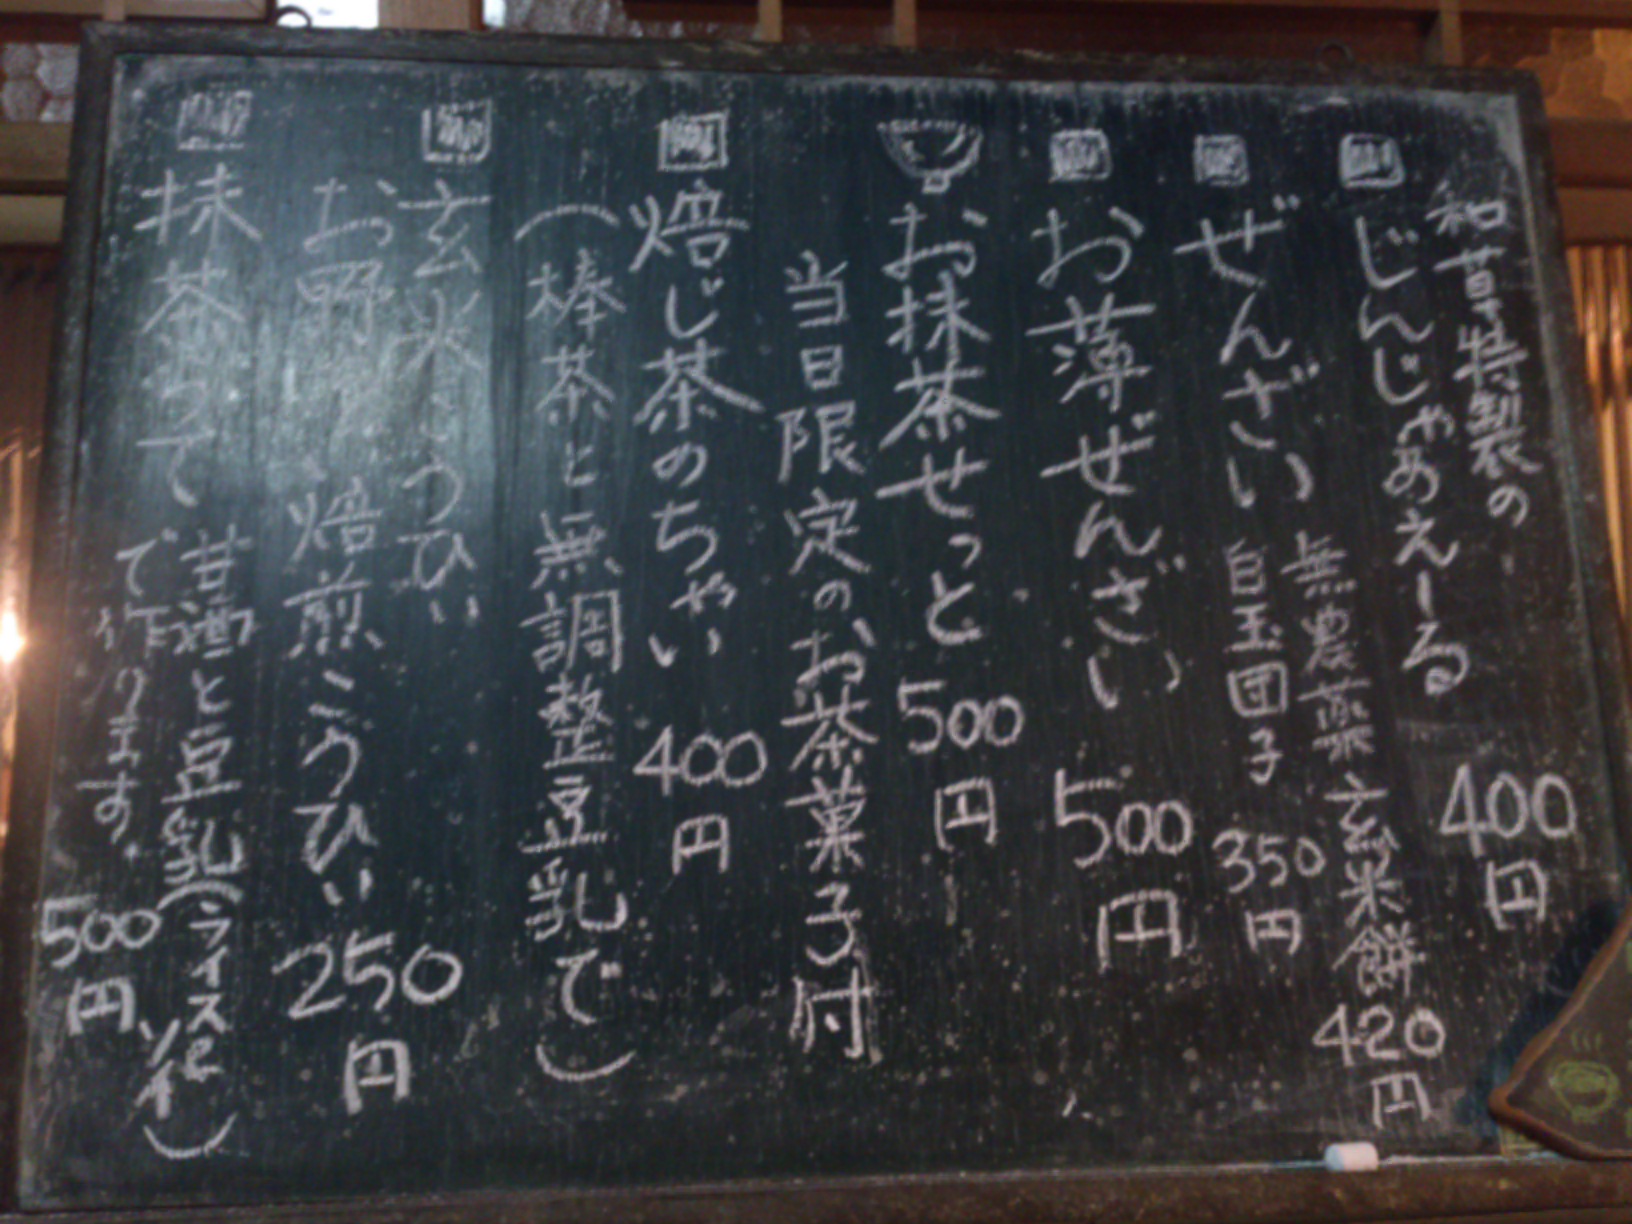 和昔特製の
じんじゃあえーる 400円
ぜんざい
無農薬玄米餅 420円
白玉団子 350円
お薄ぜんざい 500円
お抹茶せっと 500円
当日限定のお茶菓子付
焙じ茶のちゃい 400円
(棒茶と無調整豆乳で)
玄米こうひい
焙煎こうひい 250円
抹茶って
甘酒と豆乳(ライスソイ)
で作ります。 500円